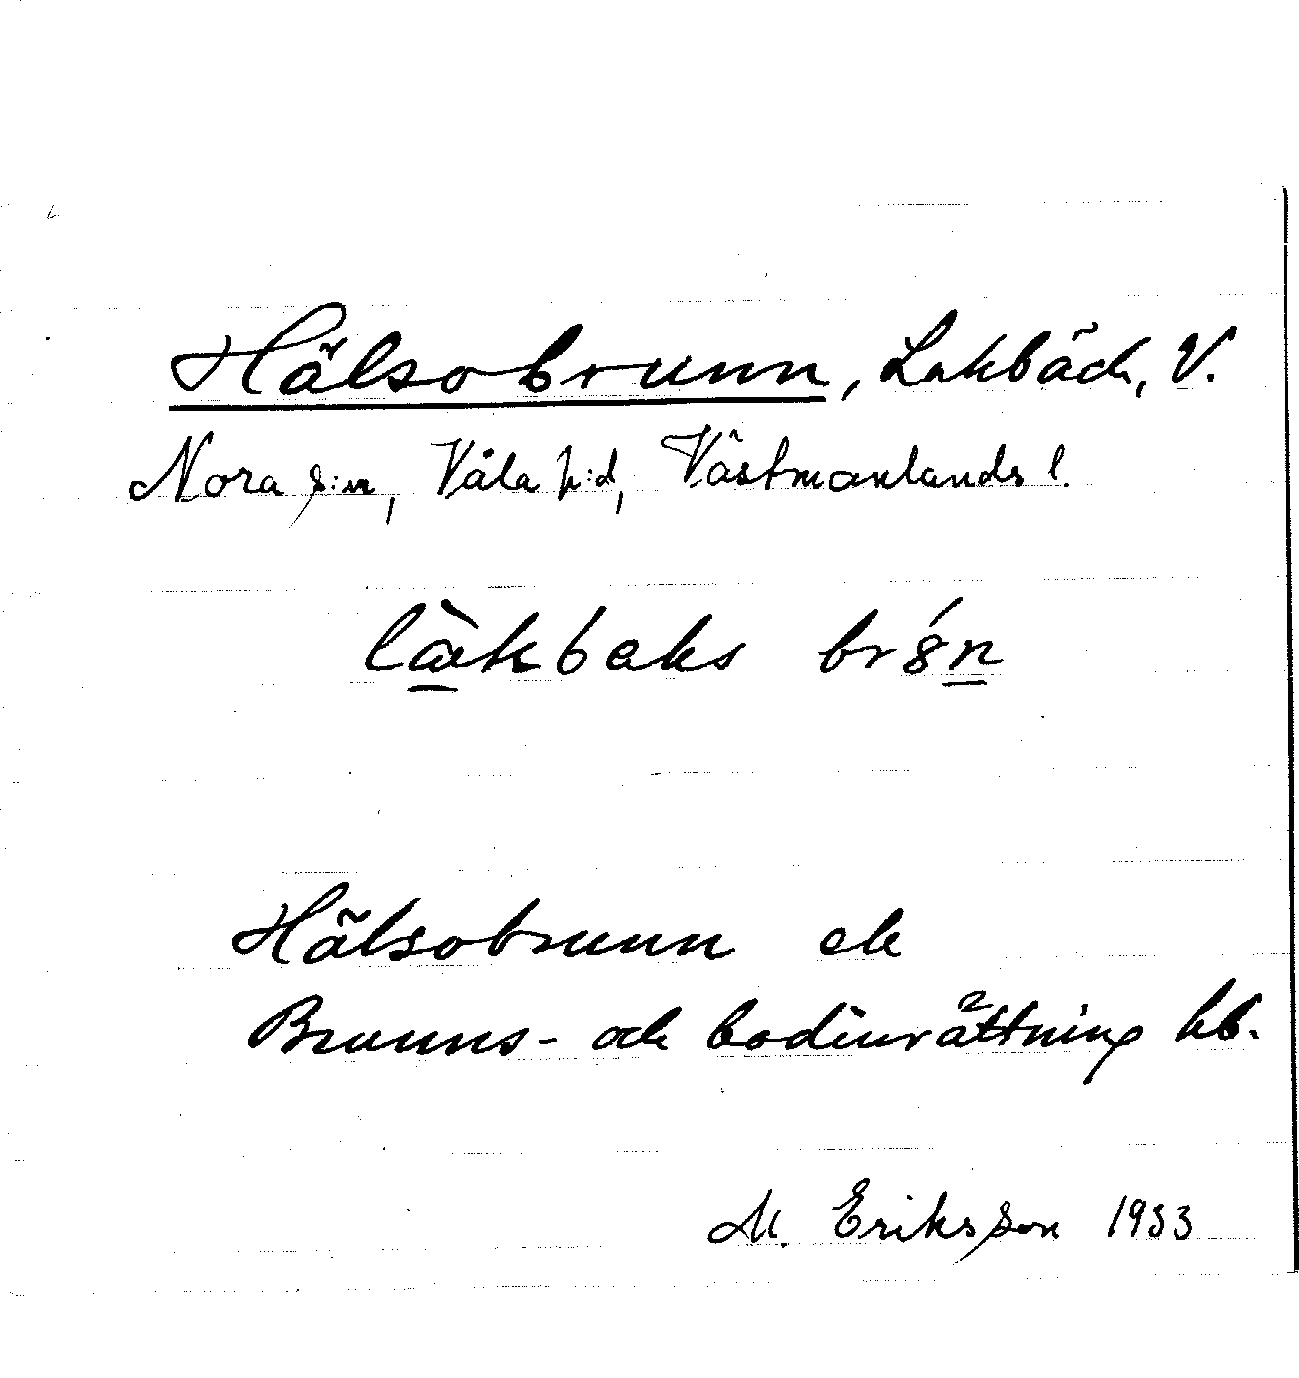 Hälsobrunn, Lakbäck, V.
Nora s:n, Våla h:d, Västmanlands l.
làkbeks brón
Hälsobrunn ek
Brunns- och badinrättning hb.
M. Eriksson 1933